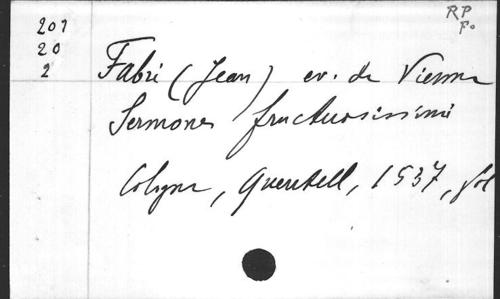 RP
Fo
201
20
2
Fabri (Jean) ev. de Vienne
Sermones fructuosissimi
Cologne, Quentell, 1537, fol